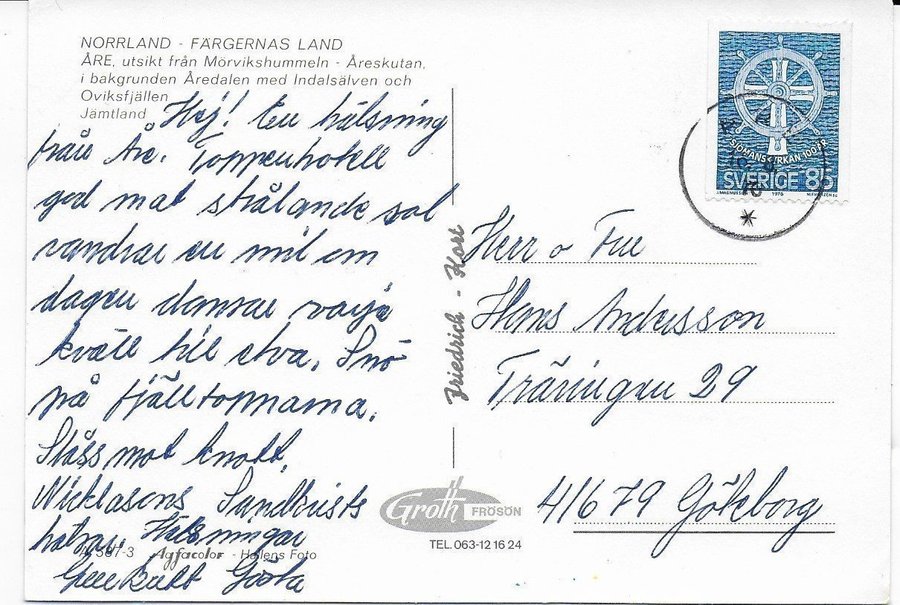 NORRLAND - FÄRGERNAS LAND
ÅRE, utsikt från Mörvikshummeln - Åreskutan,
i bakgrunden Åredalen med Indalsälven och
Oviksfjällen
Jämtland
Hej! En hälsning
från Åre. Toppenhotell
god mat strålande sol
vandrar en mil om
dagen dansar varje
kväll till elva. Snö
på fjälltopparna.
Slåss mot knott.
Nicklasons Sandkvists
hälsar. Hälsningar
Gösta
387-3 Agfacolor - Hallens Foto
Friedrich - Kort
Groth FRÖSÖN
TEL. 063-12 16 24
SJÖMANSKYRKAN 100 ÅR
SVERIGE 85
1976
Herr o Fru
Hans Andersson
Träringen 29
416 79 Göteborg